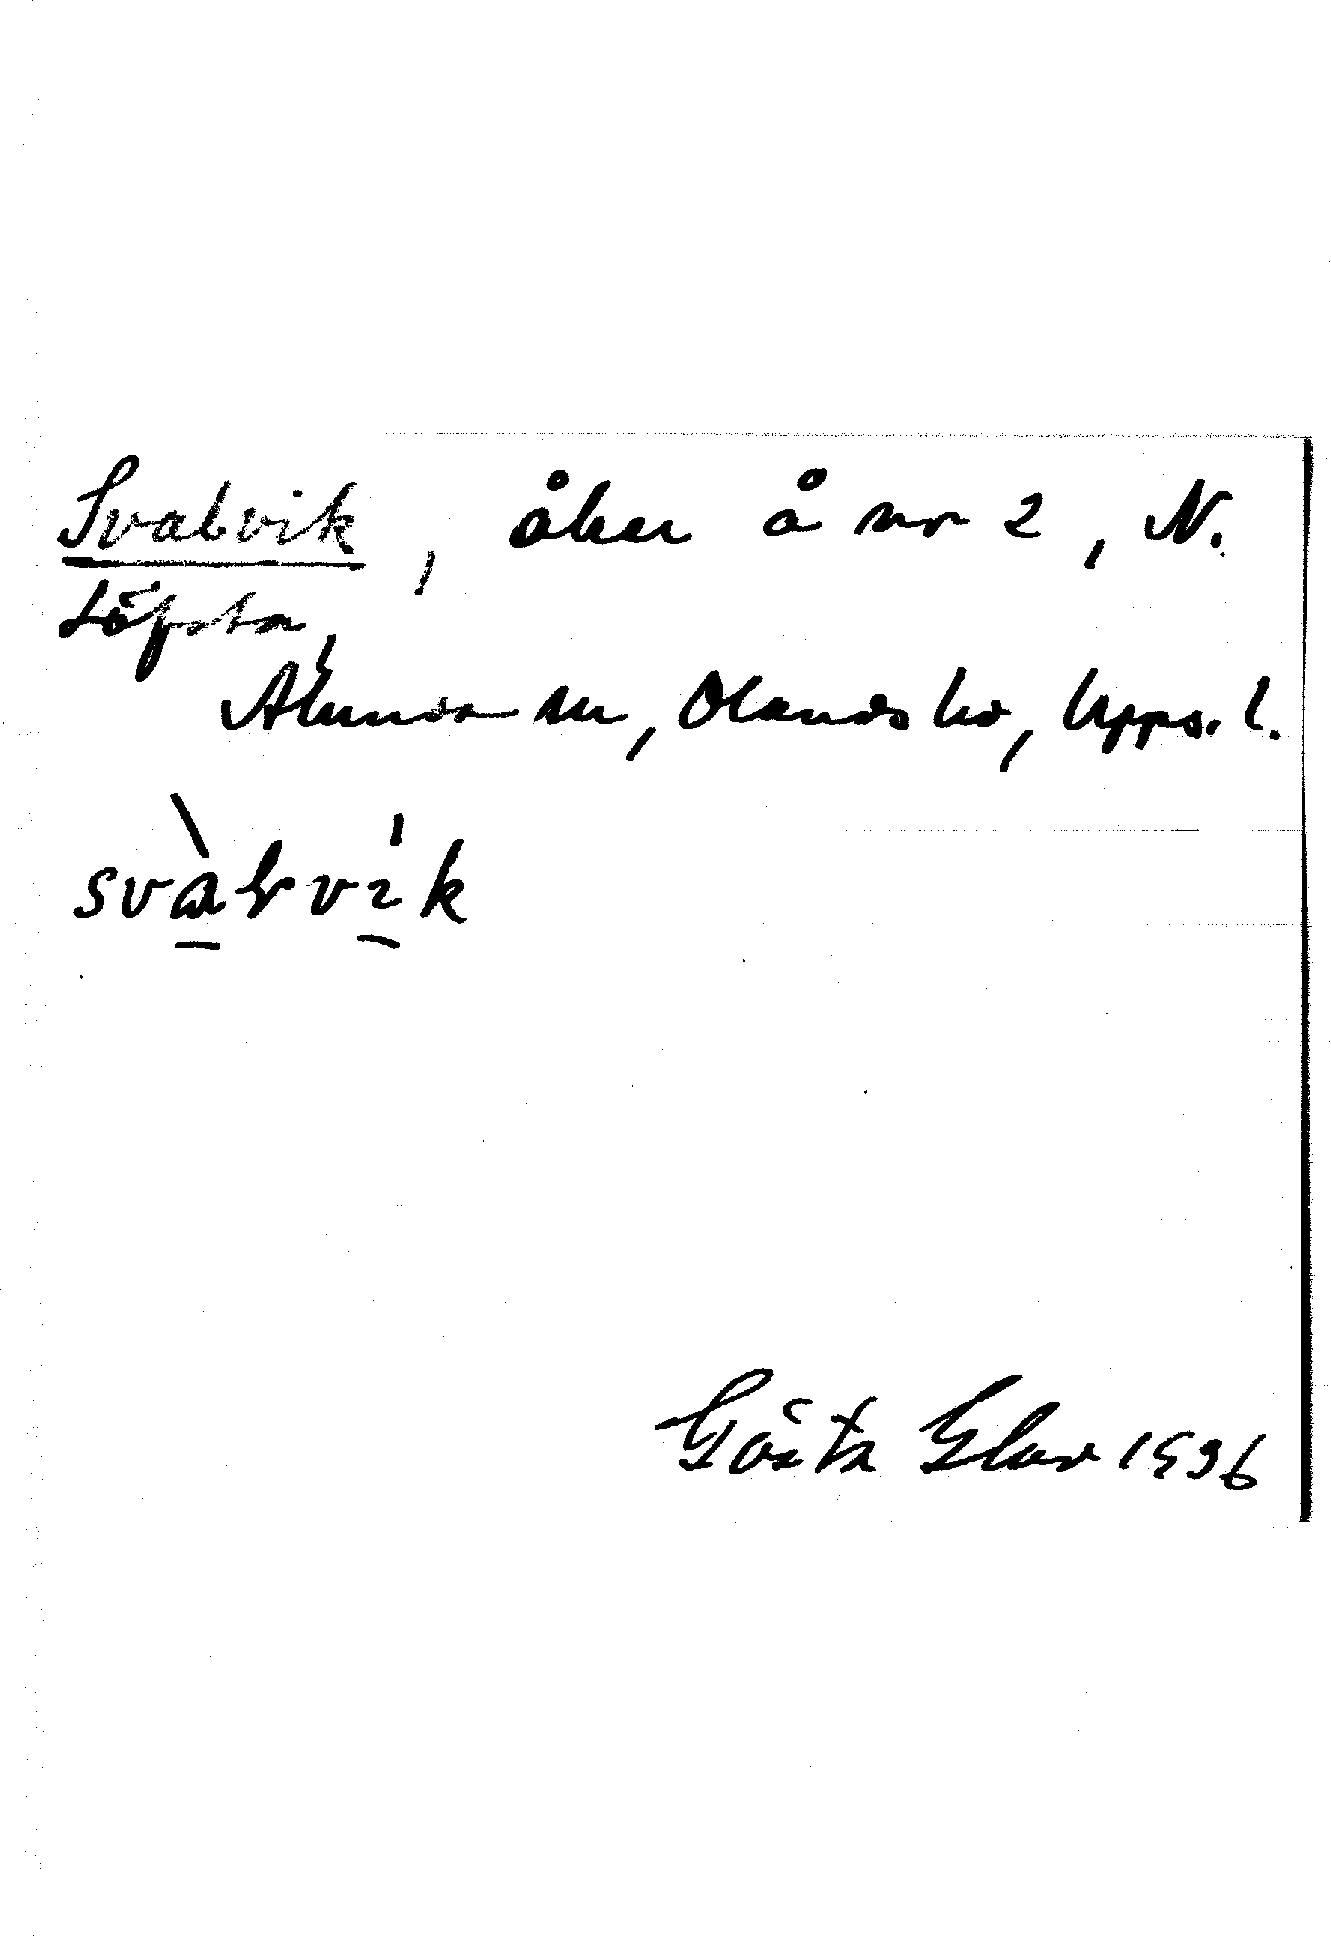 Svabvik, åker å nr 2, N.
Löfsta,
Alunda sn, Olands hd, Upps. l.
svàbvík
Gösta Elov 1936